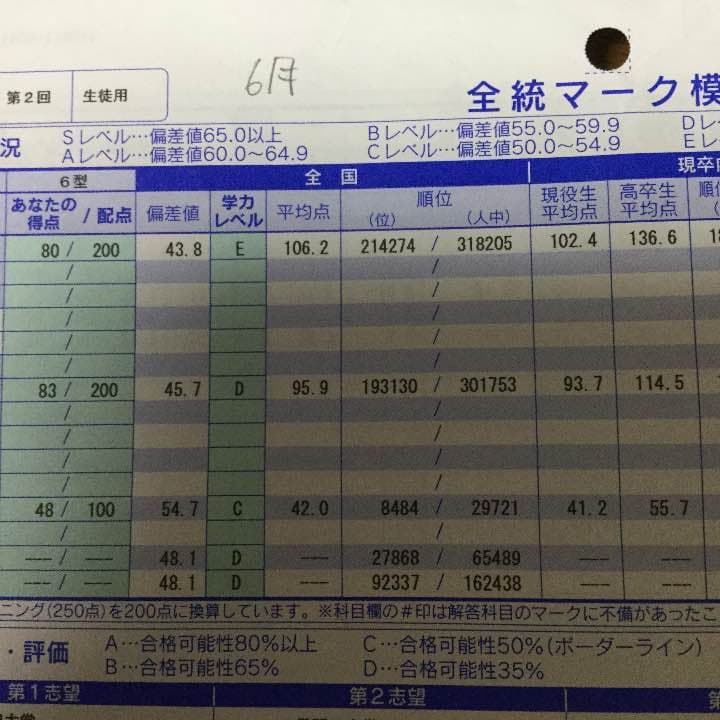 6月
第2回 生徒用
全統マーク模
況 Sレベル…偏差値65.0以上 Bレベル…偏差値55.0～59.9 Dレ
Aレベル…偏差値60.0～64.9 Cレベル…偏差値50.0～54.9 Eレ
6型 全国 現卒
あなたの得点 / 配点 偏差値 学力レベル 平均点 順位 (位) (人中) 現役生平均点 高卒生平均点 順位
80 / 200 43.8 E 106.2 214274 / 318205 102.4 136.6 18
/ /
/ /
/ /
/ /
/ /
83 / 200 45.7 D 95.9 193130 / 301753 93.7 114.5
/ /
/ /
/ /
/ /
48 / 100 54.7 C 42.0 8484 / 29721 41.2 55.7
/ /
--- / --- 48.1 D --- 27868 / 65489 --- ---
--- / --- 48.1 D --- 92337 / 162438 --- ---
ニング(250点)を200点に換算しています。※科目欄の#印は解答科目のマークに不備があったこ
・評価 A…合格可能性80%以上 C…合格可能性50%(ボーダーライン)
B…合格可能性65% D…合格可能性35%
第1志望 第2志望 第